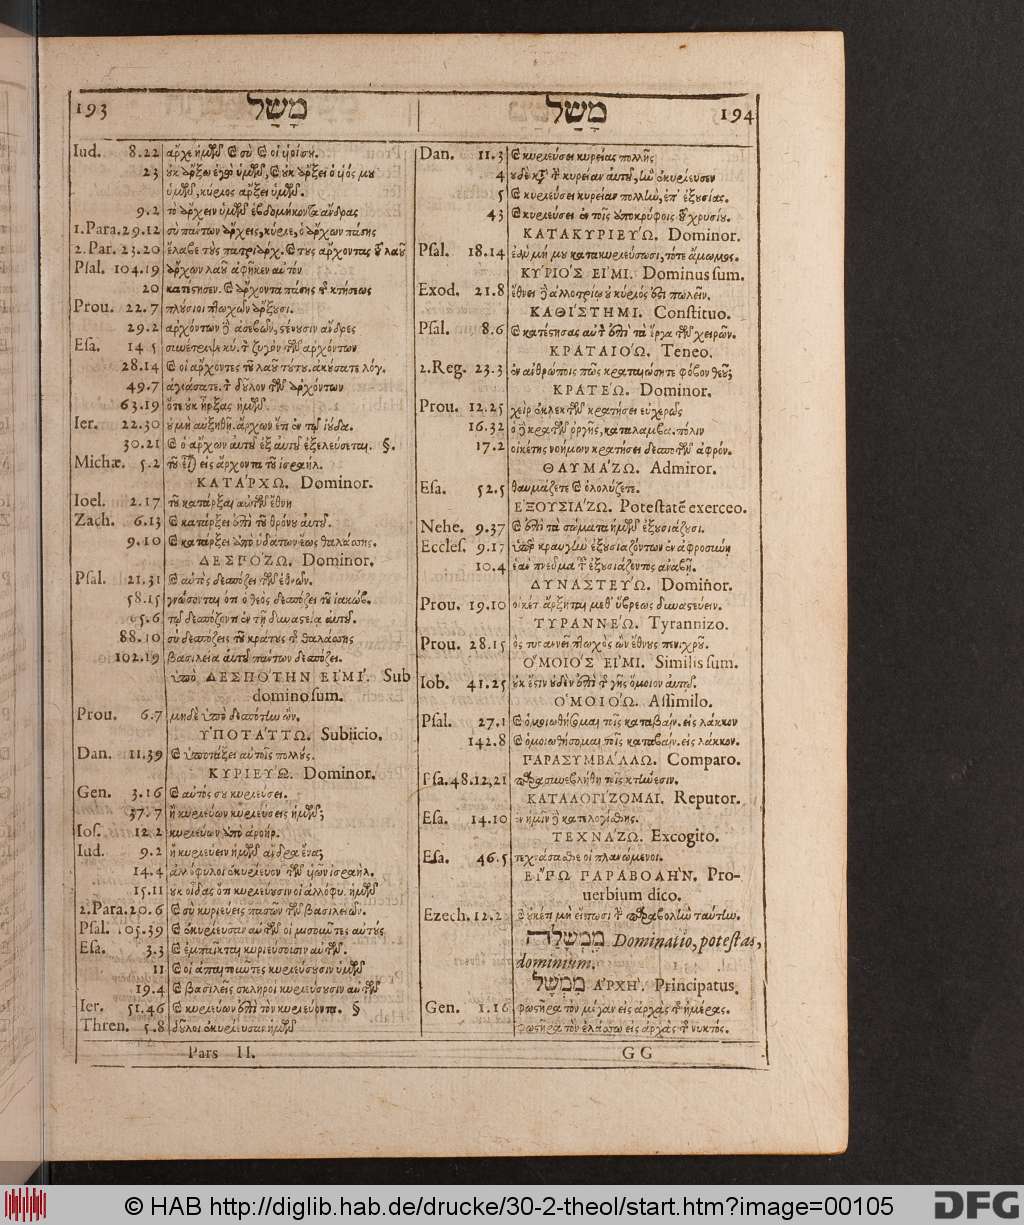 193 מָשַׁל
Iud. 8.22 ἄρχε ἡμῶν καὶ σὺ καὶ οἱ υἱοί σου.
23 οὐκ ἄρξω ἐγὼ ὑμῶν, καὶ οὐκ ἄρξει ὁ υἱός μου
ὑμῶν, κύριος ἄρξει ὑμῶν.
9.2 τὸ ἄρχειν ὑμῶν ἑβδομήκοντα ἄνδρας
1.Para. 29.12 σὺ πάντων ἄρχεις, κύριε, ὁ ἄρχων πάσης
2.Par. 23.20 ἔλαβε τοὺς πατριάρχ. καὶ τοὺς ἄρχοντας τοῦ λαοῦ
Psal. 104.19 ἄρχων λαοῦ ἀφῆκεν αὐτόν
20 κατέστησεν. καὶ ἄρχοντα πάσης τῆς κτήσεως
Prou. 22.7 πλούσιοι πτωχῶν ἄρξουσι.
29.2 ἀρχόντων δὲ ἀσεβῶν, στένουσιν ἄνδρες
Esa. 14.5 συνέτριψε κύ. τὸν ζυγὸν τῶν ἀρχόντων
28.14 καὶ οἱ ἄρχοντες τοῦ λαοῦ τούτου. ἀκούσατε λόγ.
49.7 ἁγιάσατε. τὸν δοῦλον τῶν ἀρχόντων
63.19 ὅτε οὐκ ἦρξας ἡμῶν.
Ier. 22.30 οὐ μὴ αὐξηθῇ. ἄρχων ἔτι ἐν τῷ ἰούδα.
30.21 καὶ ὁ ἄρχων αὐτοῦ ἐξ αὐτοῦ ἐξελεύσεται. §.
Michæ. 5.2 τοῦ εἶναι εἰς ἄρχοντα τοῦ ἰσραήλ.
ΚΑΤΑ΄ΡΧΩ. Dominor.
Ioel. 2.17 τοῦ κατάρξαι αὐτῶν ἔθνη
Zach. 6.13 καὶ κατάρξει ἐπὶ τοῦ θρόνου αὐτοῦ.
9.10 καὶ κατάρξει ἀπὸ ὑδάτων ἕως θαλάσσης.
ΔΕΣΠΟ΄ΖΩ. Dominor.
Psal. 21.31 καὶ αὐτὸς δεσπόζει τῶν ἐθνῶν.
58.15 γνώσονται ὅτι ὁ θεὸς δεσπόζει τοῦ ἰακώβ.
65.6 τῷ δεσπόζοντι ἐν τῇ δυναστεία αὐτοῦ.
88.10 σὺ δεσπόζεις τοῦ κράτους τῆς θαλάσσης
102.19 βασιλεία αὐτοῦ πάντων δεσπόζει.
ὑπὸ ΔΕΣΠΟΤΗΝ ΕΙ᾿ΜΙ΄. Sub
domino sum.
Prou. 6.7 μηδὲ ὑπὸ δεσπότην ὤν.
ΥΠΟΤΑ΄ΤΤΩ. Subiicio.
Dan. 11.39 καὶ ὑποτάξει αὐτοῖς πολλούς.
ΚΥΡΙΕΥ΄Ω. Dominor.
Gen. 3.16 καὶ αὐτός σου κυριεύσει.
37.7 ἢ κυριεύων κυριεύσεις ἡμῶν;
Ios. 12.2 κυριεύων ἀπὸ ἀροήρ.
Iud. 9.2 ἢ κυριεύειν ἡμῶν ἄνδρα ἕνα;
14.4 ἀλλόφυλοι ἐκυρίευον τῶν υἱῶν ἰσραήλ.
15.11 οὐκ οἶδας ὅτι κυριεύουσιν οἱ ἀλλόφυ. ἡμῶν
2.Para. 20.6 καὶ σὺ κυριεύεις πασῶν τῶν βασιλειῶν.
Psal. 105.39 καὶ ἐκυρίευσαν αὐτῶν οἱ μισοῦντες αὐτούς
Esa. 3.3 καὶ ἐμπαῖκται κυριεύσουσιν αὐτῶν.
11 καὶ οἱ ἀπαιτοῦντες κυριεύσουσιν ὑμῶν
19.4 καὶ βασιλεῖς σκληροὶ κυριεύσουσιν αὐτῶν
Ier. 51.46 καὶ κυριεύων ἐπὶ τὸν κυριεύοντα. §
Thren. 5.8 δοῦλοι ἐκυρίευσαν ἡμῶν
Pars II.
מָשַׁל 194
Dan. 11.3 καὶ κυριεύσει κυρείας πολλῆς
4 οὐδὲ κατὰ τὴν κυρείαν αὐτοῦ, ἣν ἐκυρίευσεν
5 καὶ κυριεύσει κυρείαν πολλὴν, ἐπ᾿ ἐξουσίας.
43 καὶ κυριεύσει ἐν τοῖς ἀποκρύφοις τοῦ χρυσίου.
ΚΑΤΑΚΥΡΙΕΥ΄Ω. Dominor.
Psal. 18.14 ἐὰν μή μου κατακυριεύσωσι, τότε ἄμωμος.
ΚΥ΄ΡΙΟΣ ΕΙ᾿ΜΙ. Dominus sum.
Exod. 21.8 ἔθνει δὲ ἀλλοτρίῳ οὐ κύριός ἐστι πωλεῖν.
ΚΑΘΙ΄ΣΤΗΜΙ. Constituo.
Psal. 8.6 καὶ κατέστησας αὐτὸν ἐπὶ τὰ ἔργα τῶν χειρῶν.
ΚΡΑΤΑΙΟ΄Ω. Teneo.
2.Reg. 23.3 ἐν ἀνθρώποις πῶς κραταιώσητε φόβον θεοῦ;
ΚΡΑΤΕ΄Ω. Dominor.
Prou. 12.25 χεὶρ ἐκλεκτῶν κρατήσει εὐχερῶς
16.32 ὁ δὲ κρατῶν ὀργῆς, καταλαμβα. πόλιν
17.2 οἰκέτης νοήμων κρατήσει δεσποτῶν ἀφρόν.
ΘΑΥΜΑ΄ΖΩ. Admiror.
Esa. 52.5 θαυμάζετε καὶ ὀλολύζετε.
Ε᾿ΞΟΥΣΙΑ΄ΖΩ. Potestatē exerceo.
Nehe. 9.37 καὶ ἐπὶ τὰ σώματα ἡμῶν ἐξουσιάζουσι.
Eccles. 9.17 ὑπὲρ κραυγὴν ἐξουσιαζόντων ἐν ἀφροσύνῃ
10.4 ἐὰν πνεῦμα τοῦ ἐξουσιάζοντος ἀναβῇ.
ΔΥΝΑΣΤΕΥ΄Ω. Dominor.
Prou. 19.10 οἰκέτ ἄρξηται μεθ᾿ ὕβρεως δυναστεύειν.
ΤΥΡΑΝΝΕ΄Ω. Tyrannizo.
Prou. 28.15 ὃς τυραννεῖ πτωχὸς ὢν ἔθνους πενιχροῦ.
Ο῞ΜΟΙΟ΄Σ ΕΙ᾿ΜΙ. Similis sum.
Iob. 41.25 οὐκ ἔστιν οὐδὲν ἐπὶ τῆς γῆς ὅμοιον αὐτοῦ.
Ο῾ΜΟΙΟ΄Ω. Assimilo.
Psal. 27.1 καὶ ὁμοιωθήσομαι τοῖς καταβαίν. εἰς λάκκον
142.8 καὶ ὁμοιωθήσομαι τοῖς καταβαίν. εἰς λάκκον.
ΠΑΡΑΣΥΜΒΑ΄ΛΛΩ. Comparo.
Psa. 48.12,21 παρασυνεβλήθη τοῖς κτήνεσιν.
ΚΑΤΑΛΟΓΙ΄ΖΟΜΑΙ. Reputor.
Esa. 14.10 ἐν ἡμῖν δὲ κατελογίσθης.
ΤΕΧΝΑ΄ΖΩ. Excogito.
Esa. 46.5 τεχνάσασθε οἱ πλανώμενοι.
ΕΙ῎ΡΩ ΠΑΡΑΒΟΛΗ΄Ν. Pro-
uerbium dico.
Ezech. 12.2 οὐκέτι μὴ εἴπωσι τὴν παραβολὴν ταύτην.
מֶמְשָׁלָה Dominatio, potestas,
dominium.
מִמְשָׁל Α᾿ΡΧΗ΄. Principatus.
Gen. 1.16 φωστῆρα τὸν μέγαν εἰς ἀρχὰς τῆς ἡμέρας.
φωστῆρα τὸν ἐλάσσω εἰς ἀρχὰς τῆς νυκτός.
GG
© HAB http://diglib.hab.de/drucke/30-2-theol/start.htm?image=00105
DFG